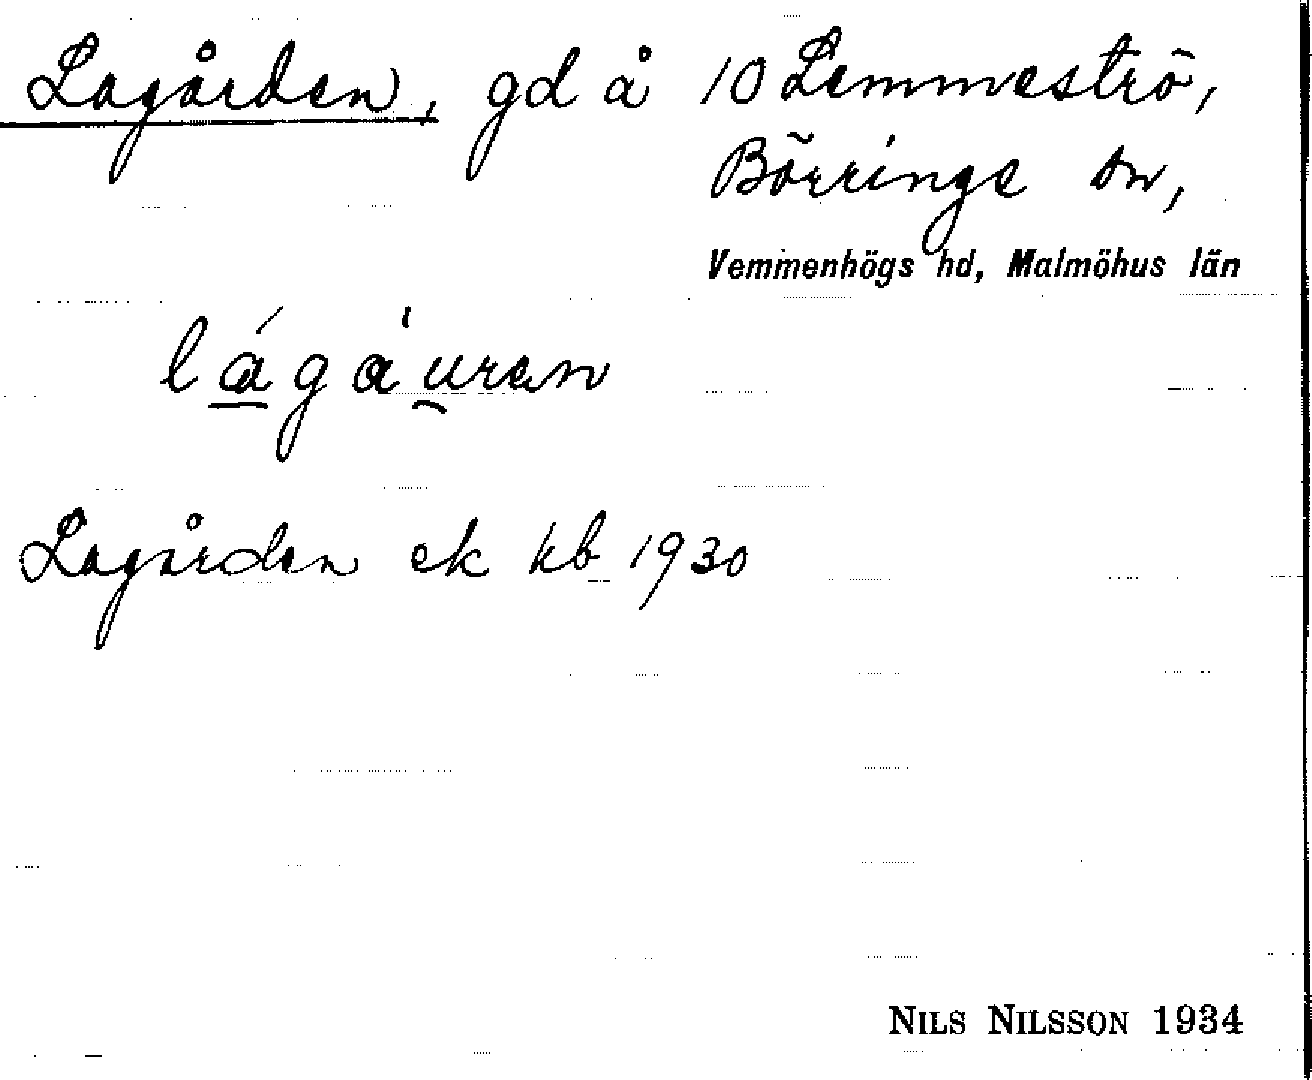 Lagården, gd å 10 Lemmeströ,
Börringe sn,
Vemmenhögs hd, Malmöhus län
lágáuran
Lagården ek kb 1930
NILS NILSSON 1934